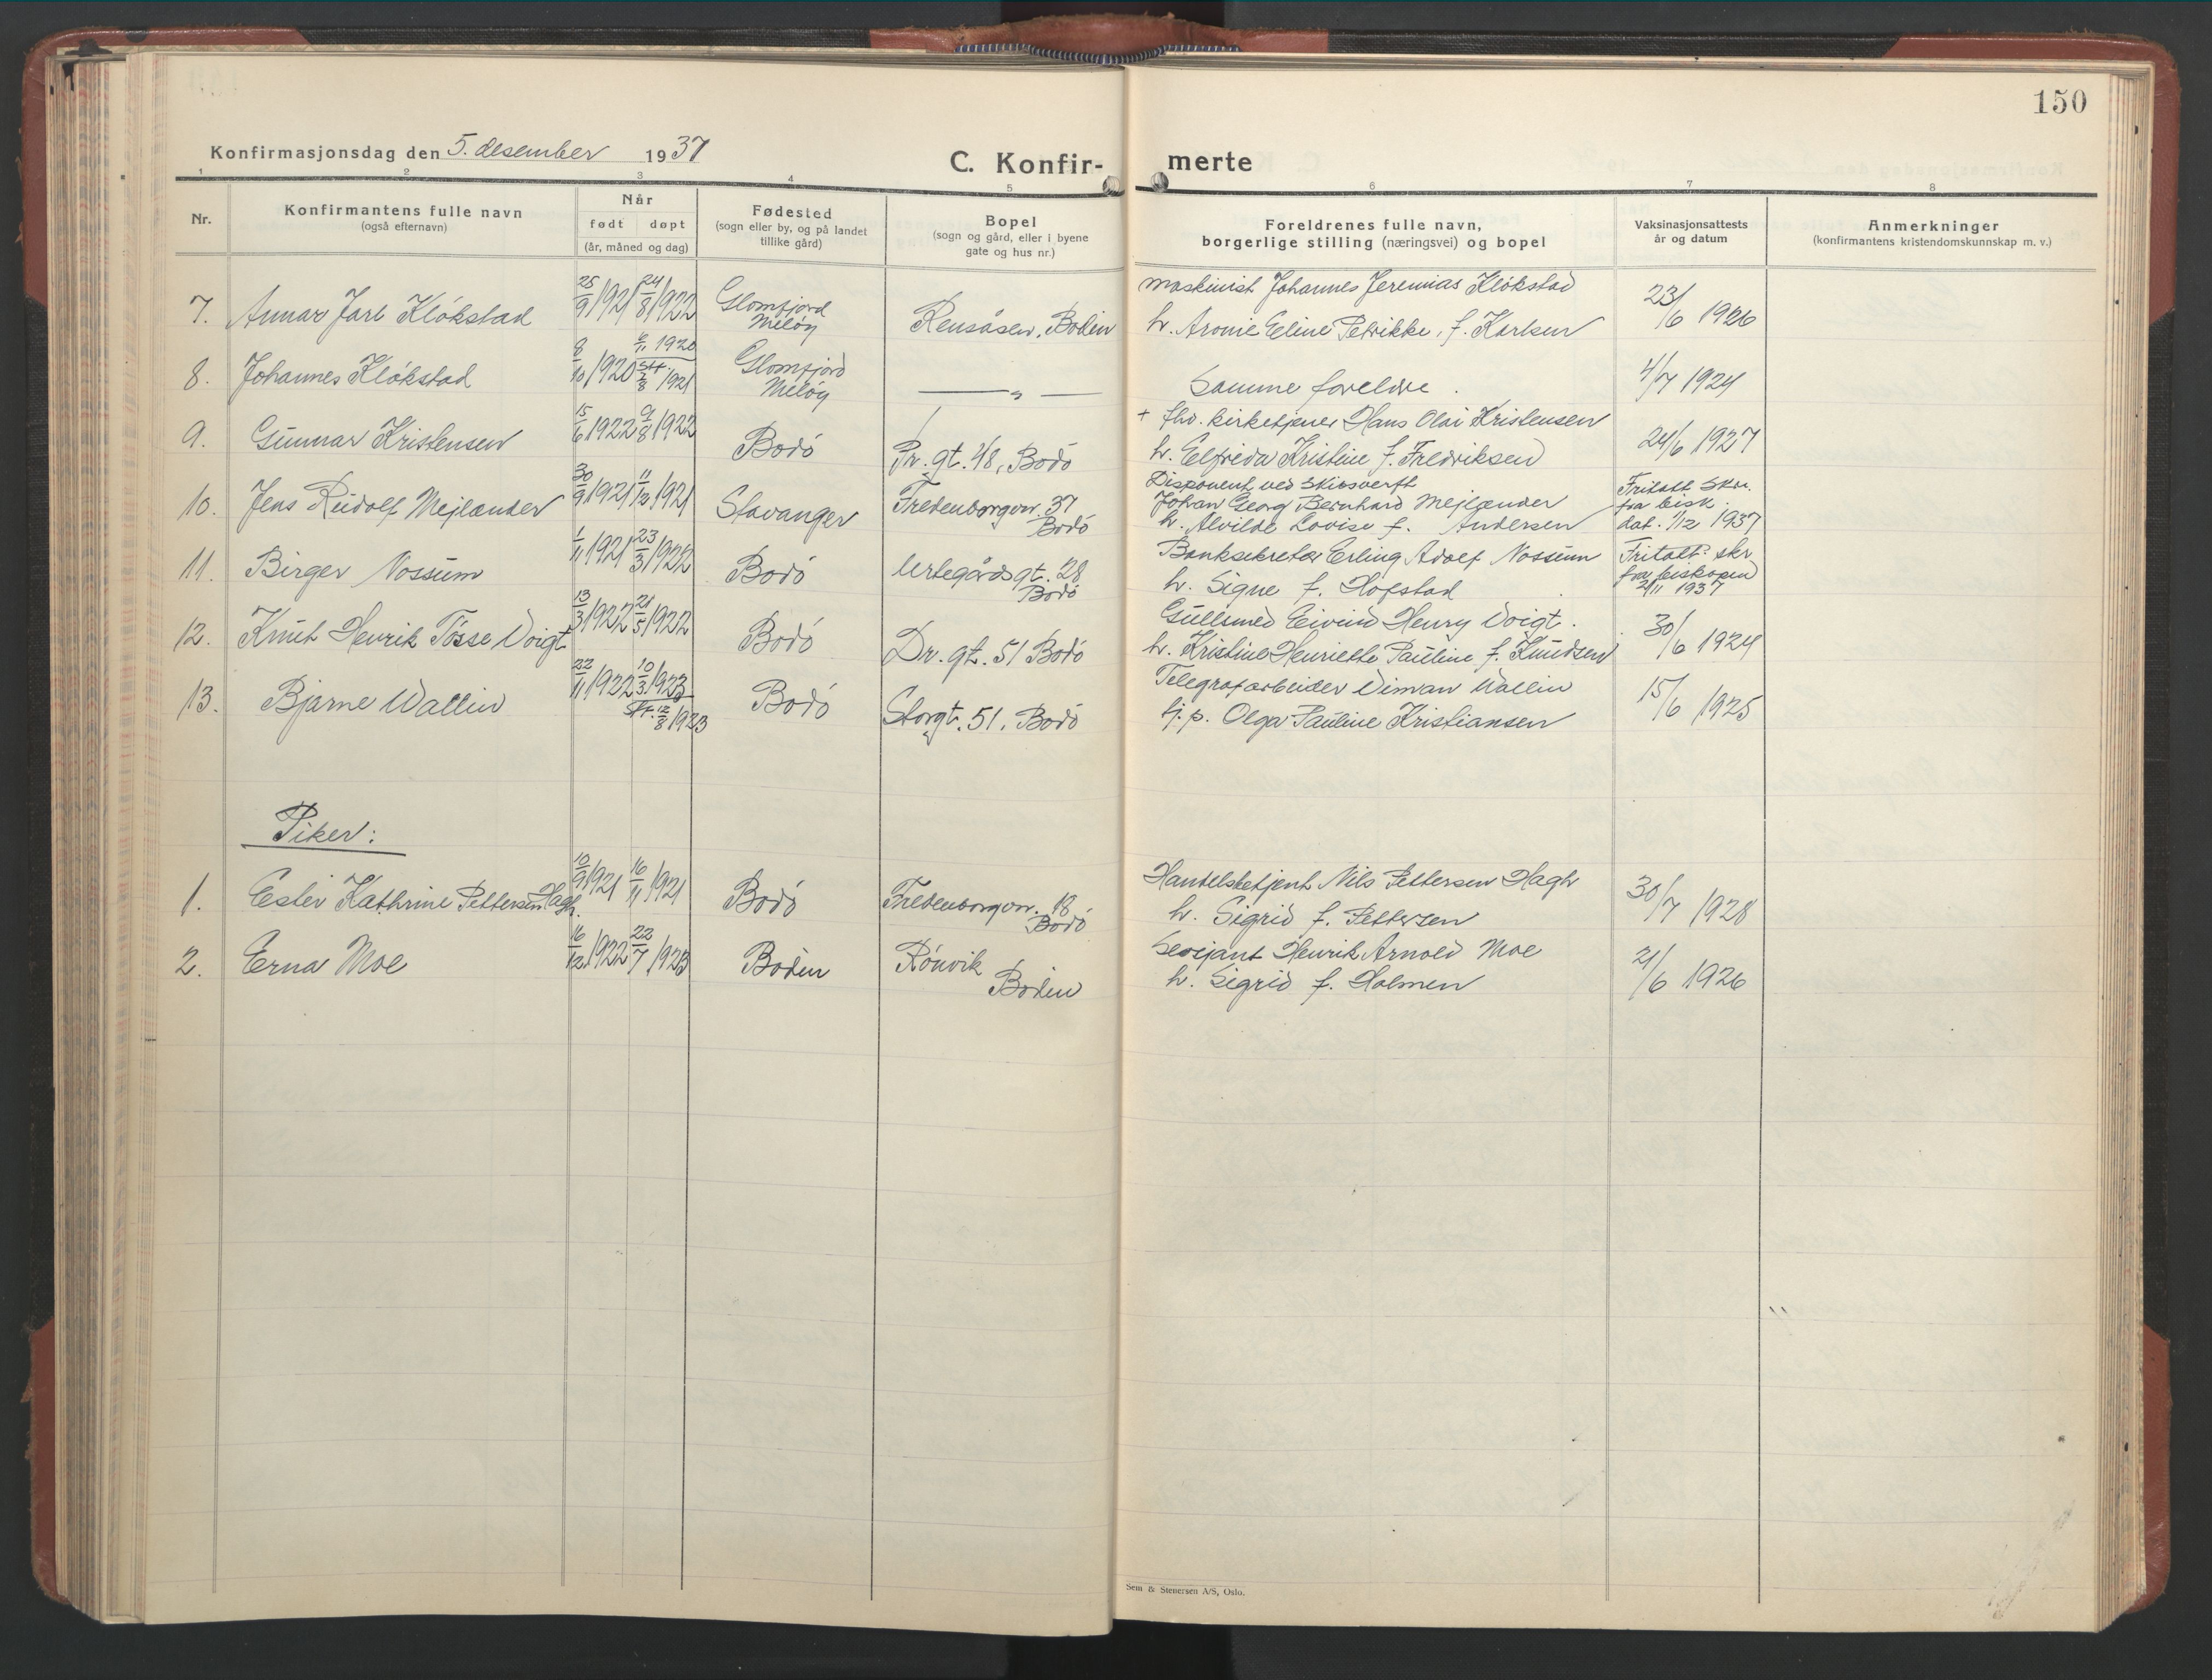 150
Konfirmasjonsdag den 5. desember 1937
C. Konfir- merte
1 2 3 4 5 6 7 8
Nr.
Konfirmantens fulle navn
(også efternavn)
Når
født døpt
(år, måned og dag)
Fødested
(sogn eller by, og på landet
tillike gård)
Bopel
(sogn og gård, eller i byene
gate og hus nr.)
Foreldrenes fulle navn,
borgerlige stilling (næringsvei) og bopel
Vaksinasjonsattests
år og datum
Anmerkninger
(konfirmantens kristendomskunnskap m. v.)
7. Annar Jarl Klökstad 25/9 1921 24/8 1922 Glomfjord Meløy Rensåsen, Bodin
Maskinist Johannes Jeremias Klökstad
h. Aronie Eline Petrikke, f. Karlsen 23/6 1926
8. Johannes Klökstad 8/10 1920 6/11 1920 st. 7/8 1921 Glomfjord Meløy — " —
Samme foreldre. 4/7 1924
9. Gunnar Kristensen 15/6 1922 9/8 1922 Bodö Pr. gt. 48, Bodö
+ fhv. kirketjener Hans Olai Kristensen
h. Elfrida Kristine f. Fredriksen 24/6 1927
10. Jens Rudolf Mejlænder 30/9 1921 11/12 1921 Stavanger Fredenborgvn. 37 Bodö
Disponent ved Skibsverft
Johan Georg Bernhard Mejlænder
h. Alvilde Lovise f. Andersen
Fritatt skr.
fra bisk.
dat. 1/12 1937
11. Birger Nossum 1/11 1921 23/3 1922 Bodö Urtegårdsgt. 28 Bodö
Banksekretær Erling Adolf Nossum
h. Signe f. Hofstad
Fritatt skr
fra biskopen
2/11 1937
12. Knut Henrik Tösse Voigt 13/3 1922 21/5 1922 Bodö Dr. gt. 51 Bodö
Gullsmed Eivind Henry Voigt.
h. Kristine Henriette Pauline f. Knudsen 30/6 1924
13. Bjarne Wallin 22/11 1922 10/3 1923 st. 12/8 1923 Bodö Storgt. 51, Bodö
Telegrafarbeider Wallin
tj.p. Olga Pauline Kristiansen 15/6 1925
Piker:
1. Eslev Kathrine Pettersen Hagh. 10/9 1921 16/11 1921 Bodö Fredenborgvn. 18 Bodö
Handelsbetjent Nils Pettersen Hagh
h. Sigrid f. Pettersen 30/7 1928
2. Erna Moe 16/12 1922 22/7 1923 Bodin Rönvik Bodin
Sersjant Henrik Arnold Moe
h. Sigrid f. Holmen 21/6 1926
Sem & Stenersen A/S, Oslo.